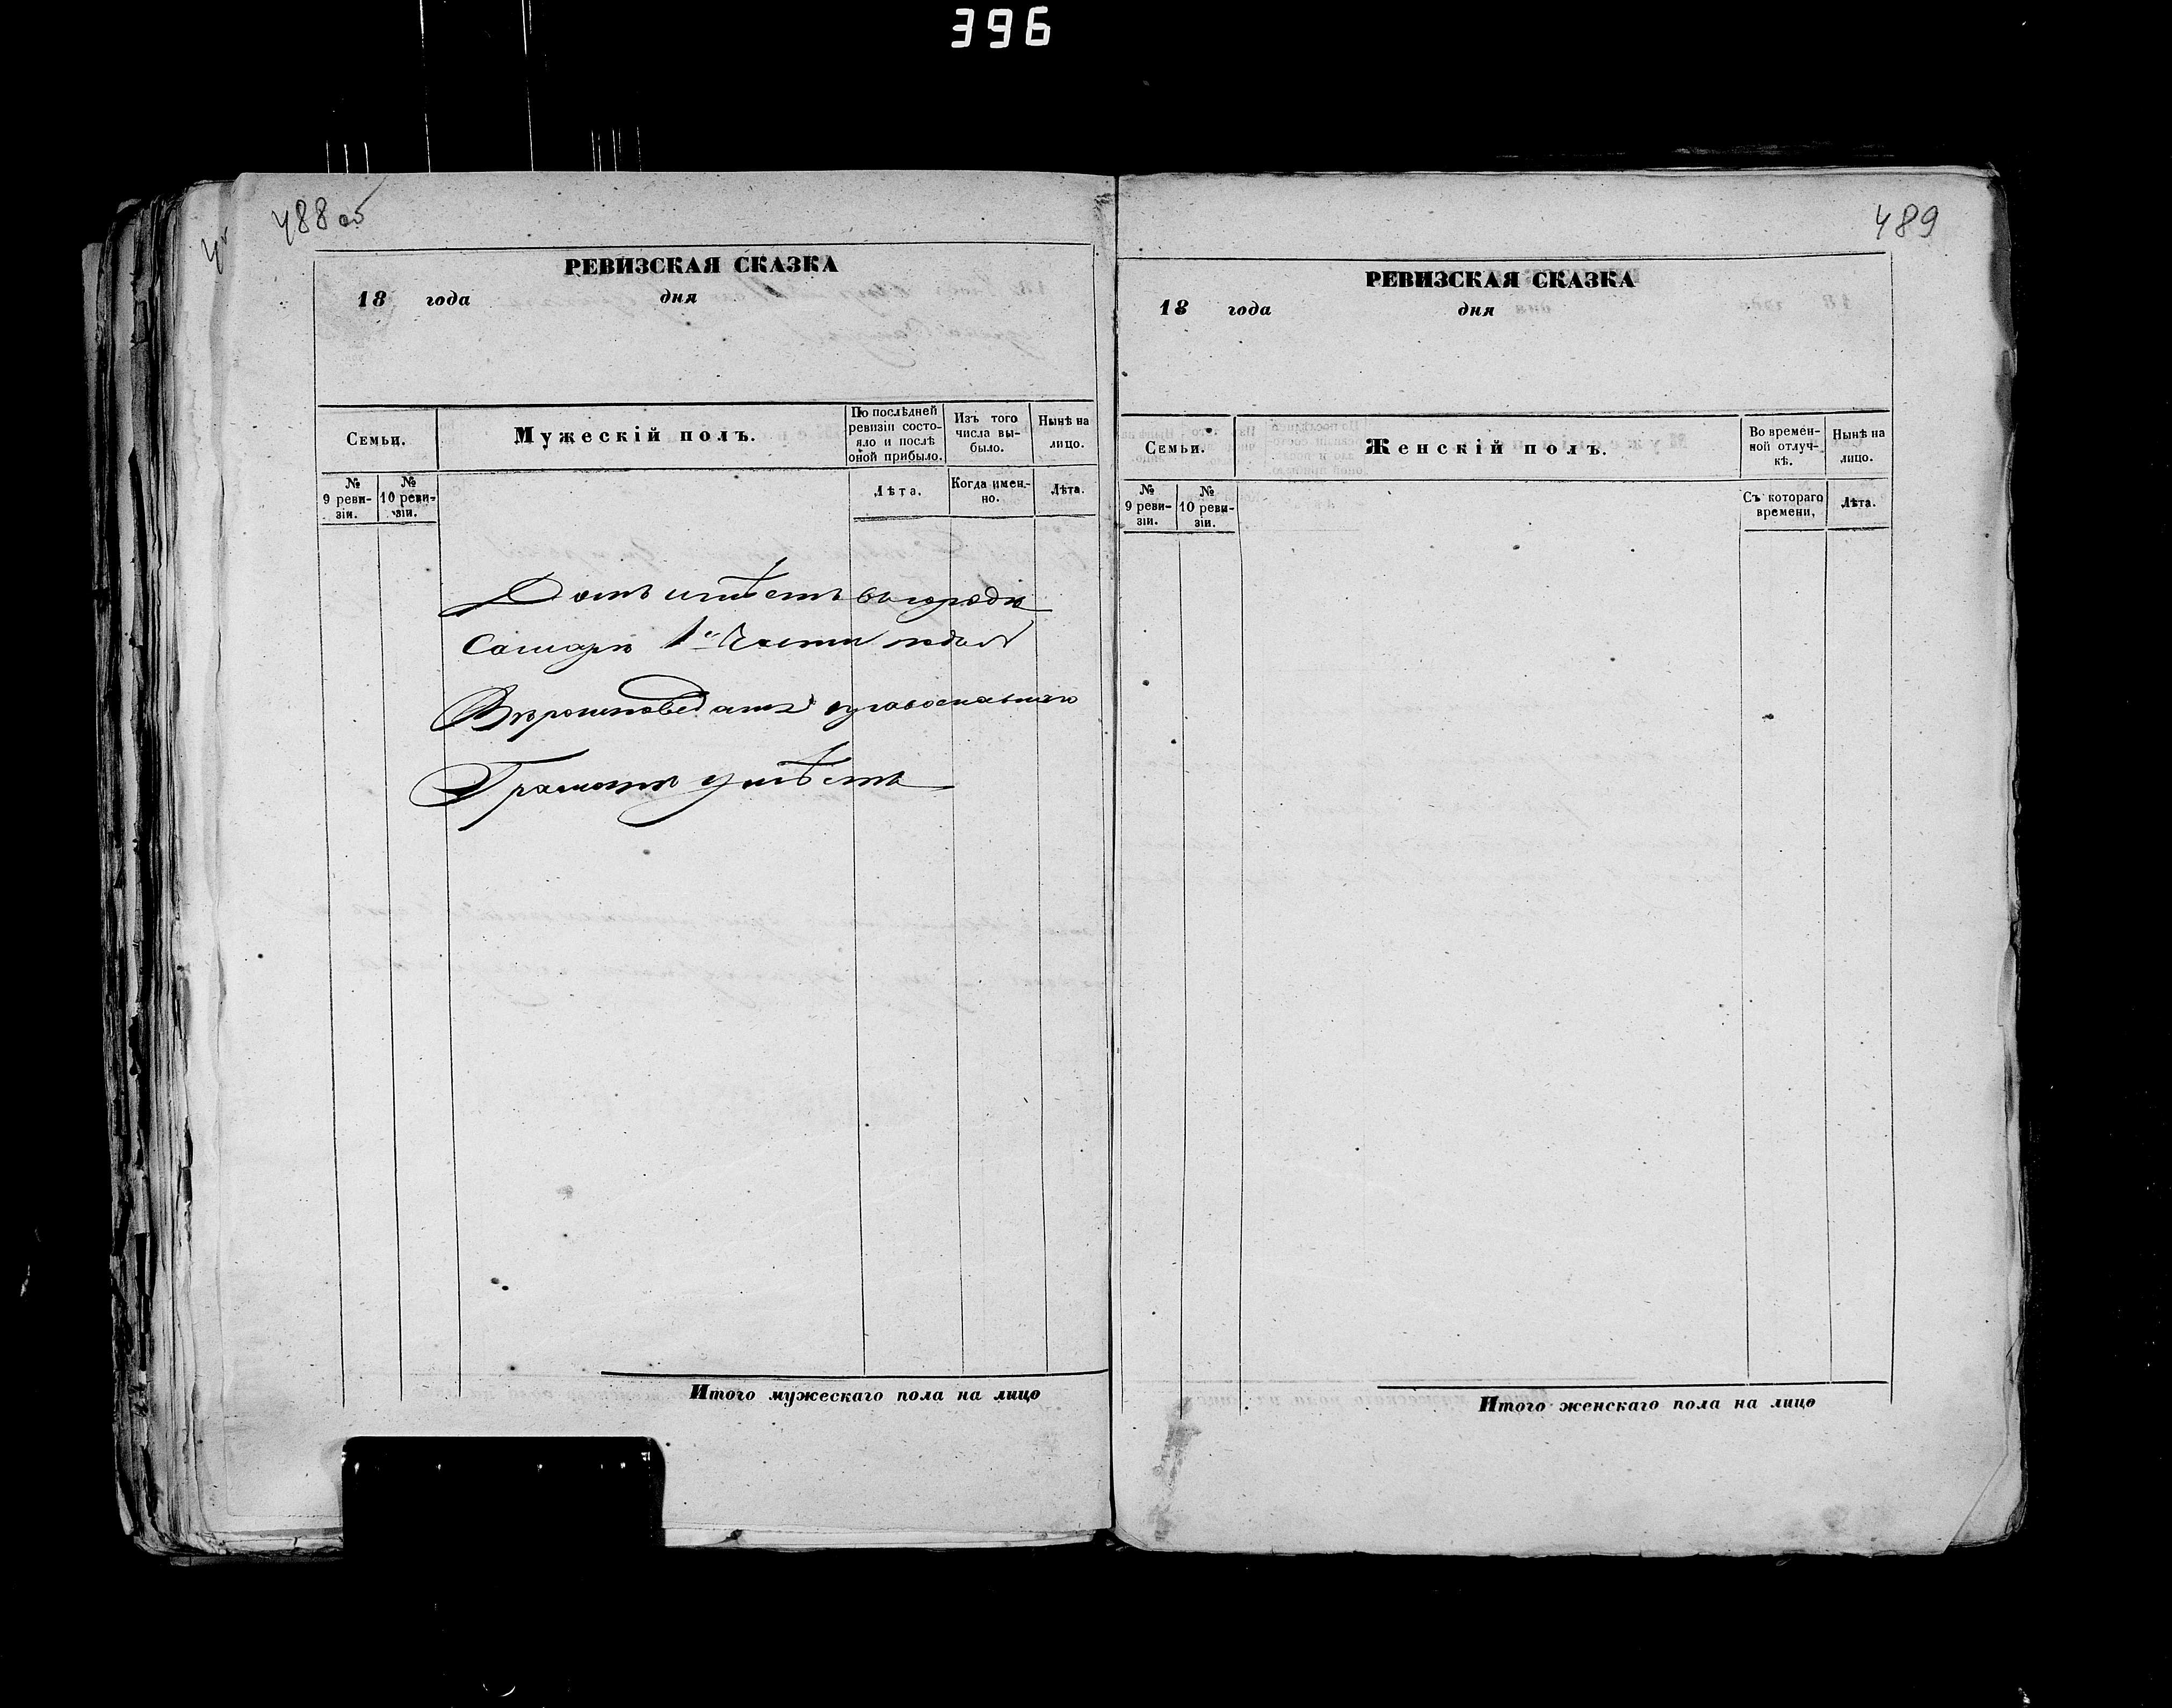 396
488 об
РЕВИЗСКАЯ СКАЗКА
18 года дня
Семьи.
Мужескій полъ.
По послѣдней ревизіи состояло и послѣ оной прибыло.
Изъ того числа выбыло.
Нынѣ на лицо.
№ 9 ревизіи.
№ 10 ревизіи.
Лѣта.
Когда именно.
Лѣта.
Домъ имѣетъ въ городѣ
Самарѣ 1й Части
Вѣроисповеданія православнаго
Грамотѣ умѣетъ
Итого мужескаго пола на лицо
489
РЕВИЗСКАЯ СКАЗКА
18 года дня
Семьи.
Женскій полъ.
Во временной отлучкѣ.
Нынѣ на лицо.
№ 9 ревизіи.
№ 10 ревизіи.
Съ котораго времени,
Лѣта.
Итого женскаго пола на лицо